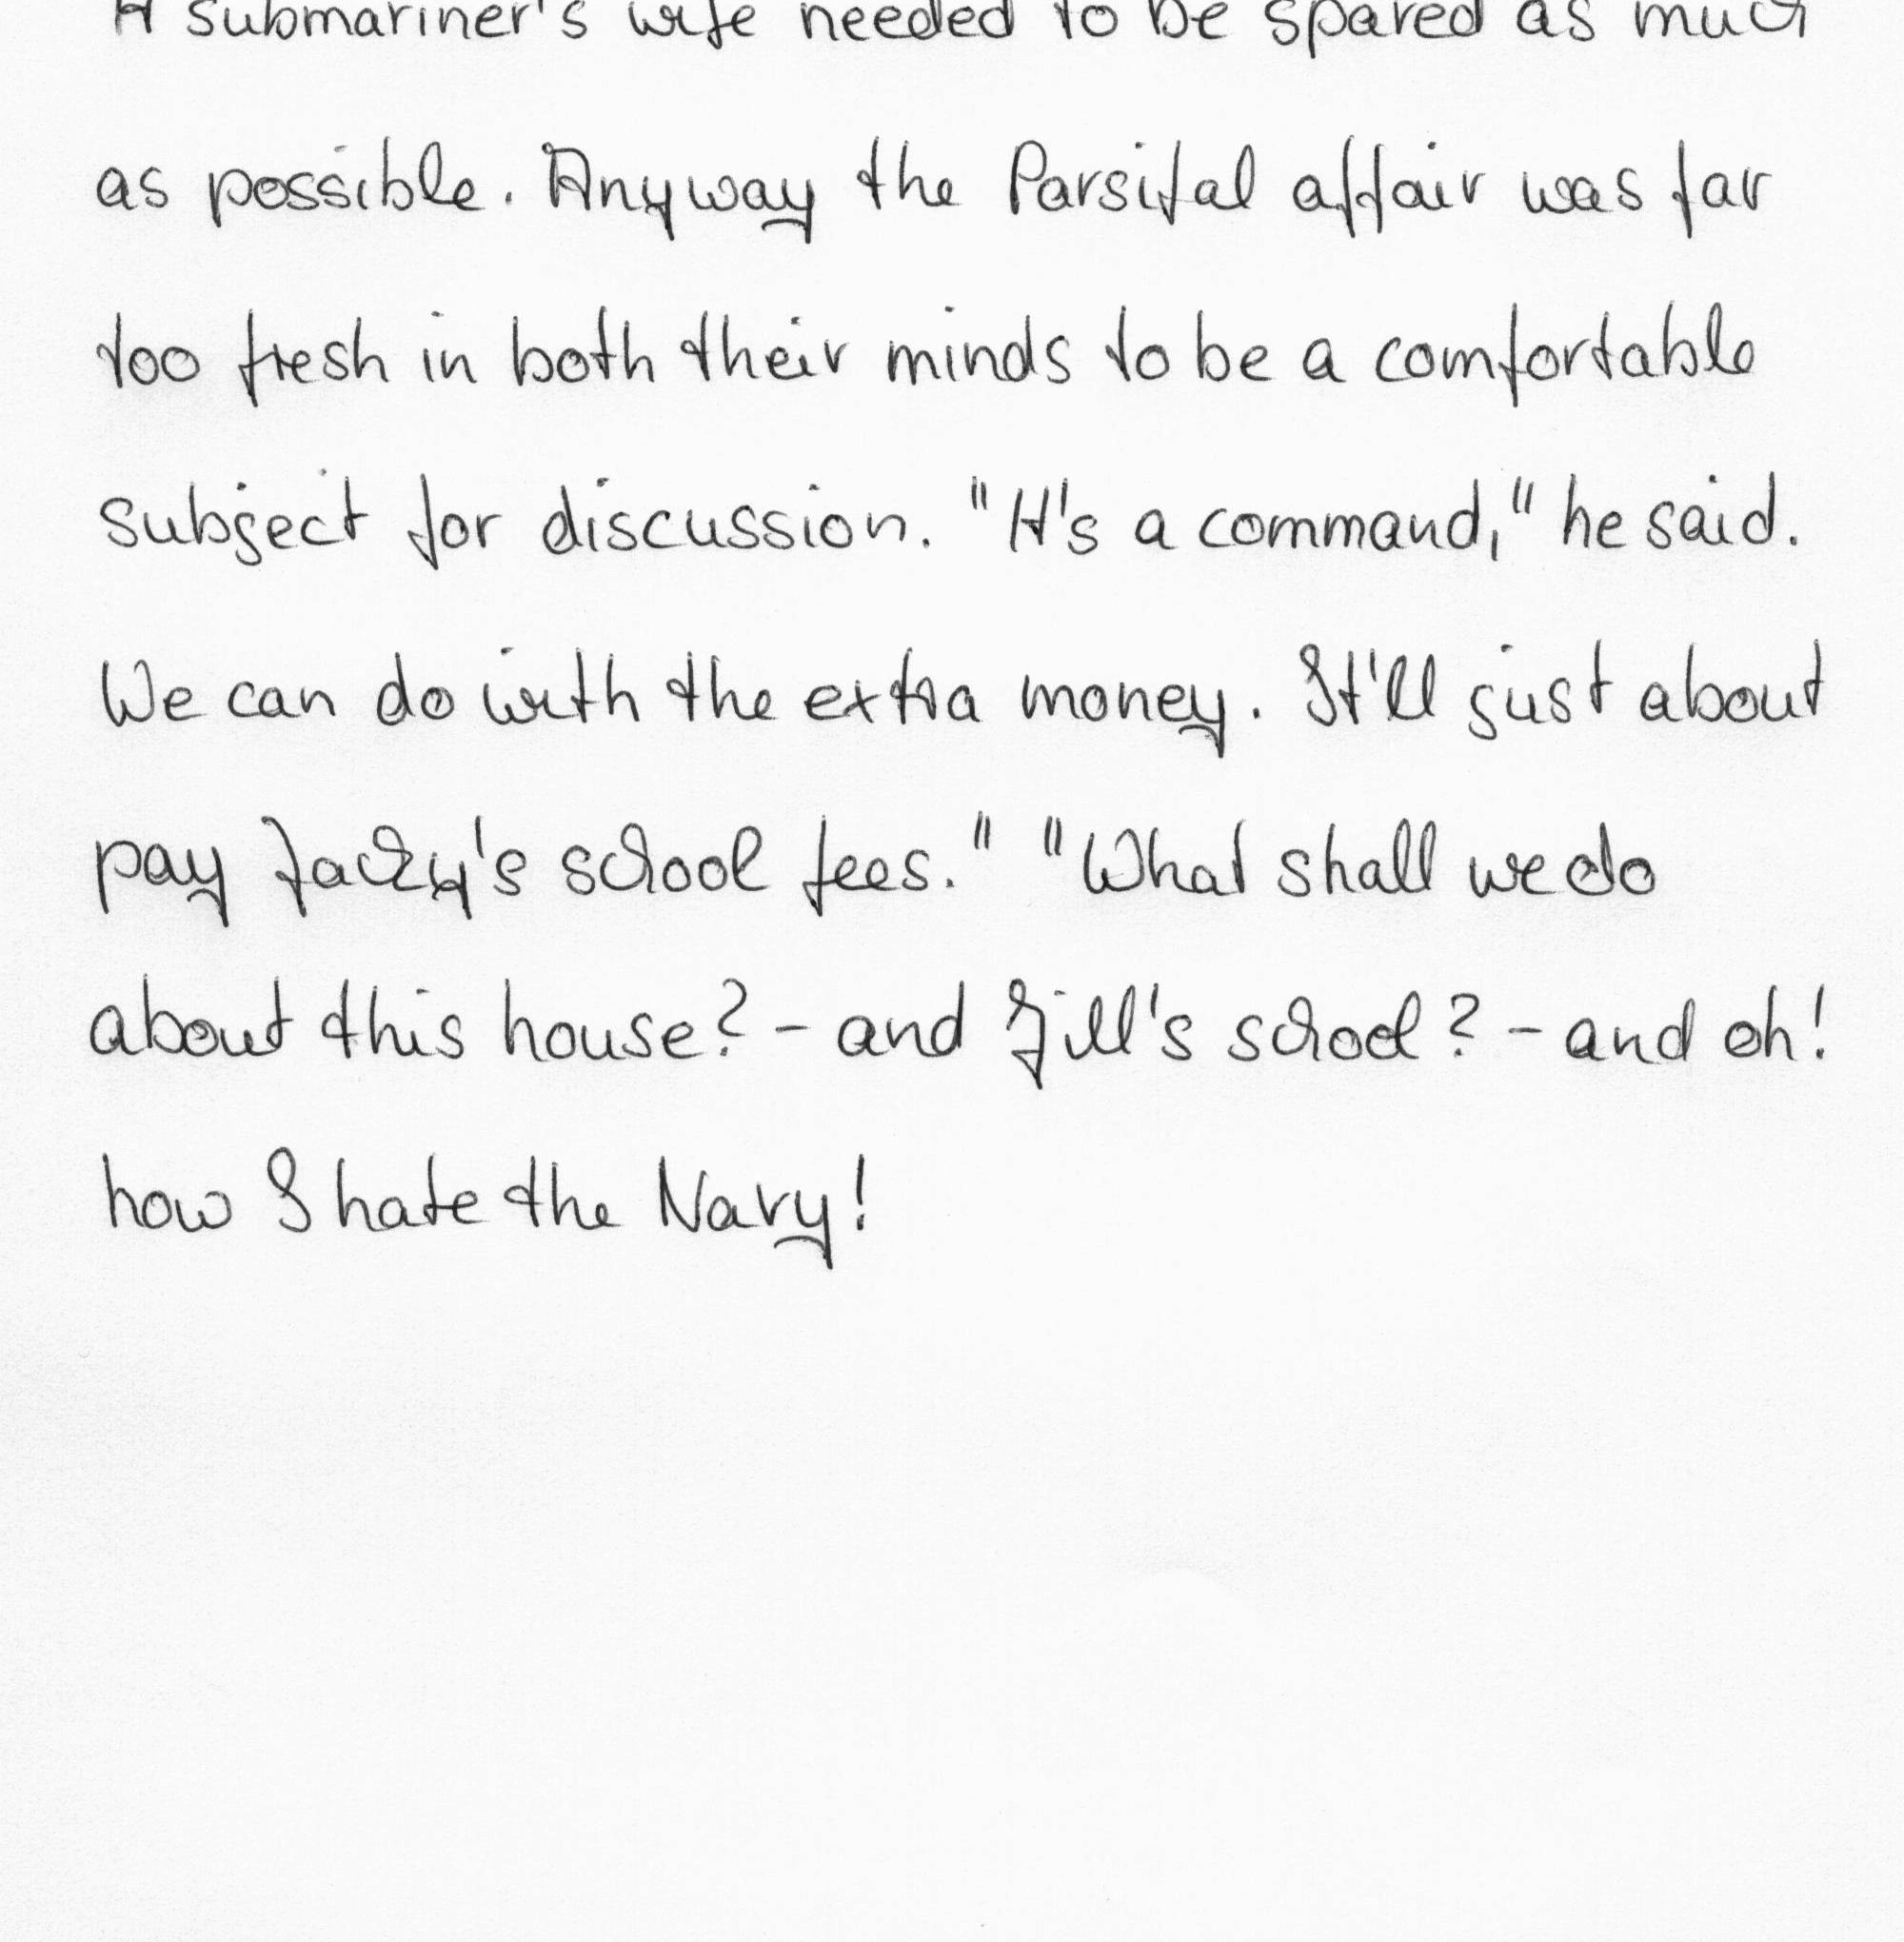 A submariner's wife needed to be spared as much
as possible. Anyway the Parsifal affair was far
too fresh in both their minds to be a comfortable
subject for discussion. "It's a command," he said.
We can do with the extra money. It'll just about
pay Jacky's school fees." "What shall we do
about this house? - and Jill's school? - and oh!
how I hate the Navy!